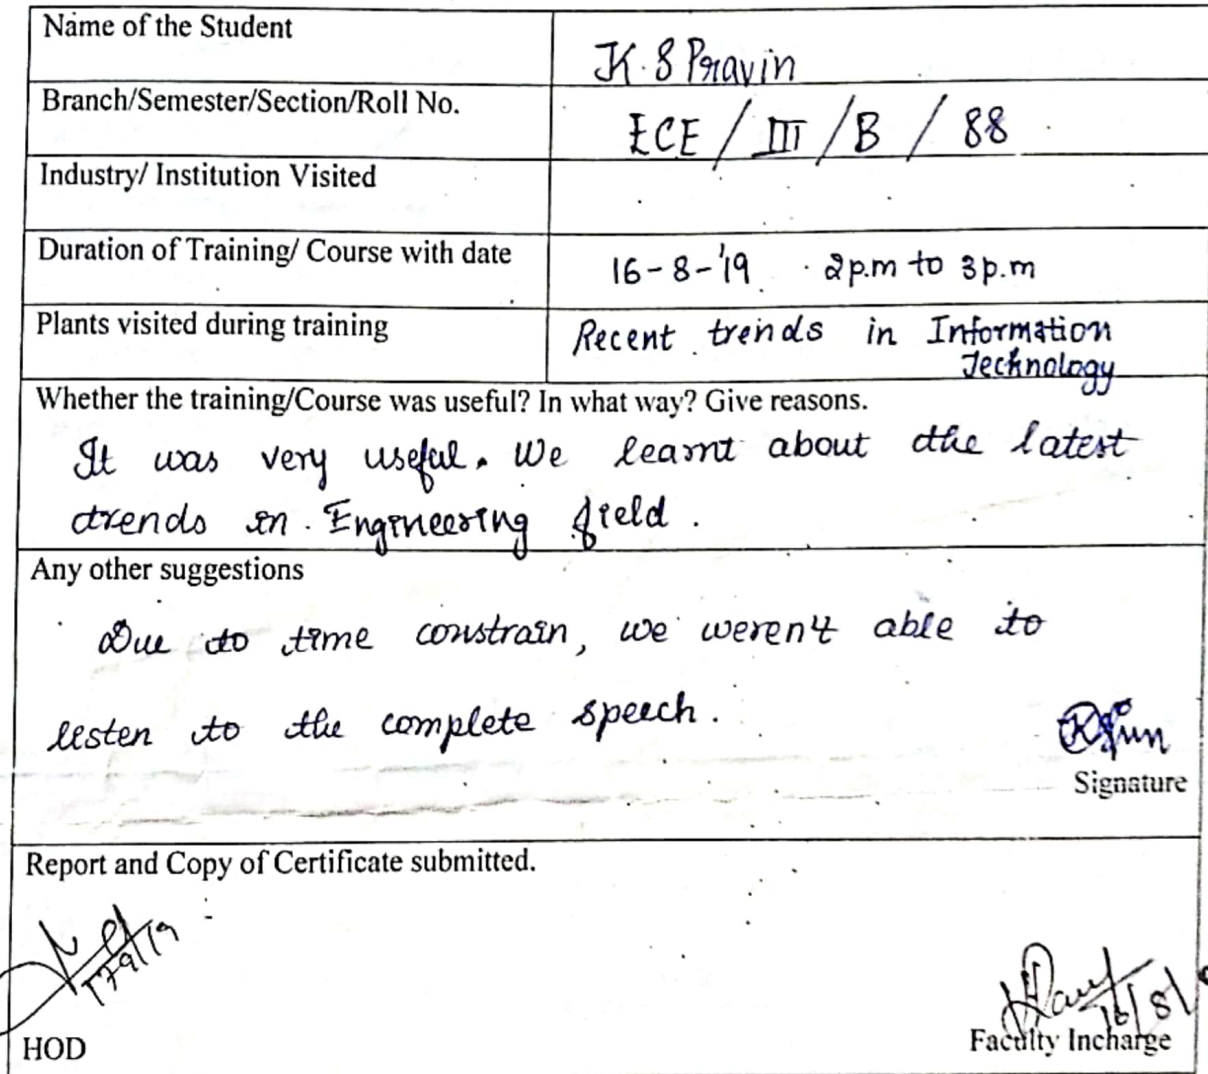 Name of the Student
K. S Pravin
Branch/Semester/Section/Roll No.
ECE / III / B / 88
Industry/ Institution Visited
Duration of Training/ Course with date
16-8-'19 2p.m to 3p.m
Plants visited during training
Recent trends in Information
Technology
Whether the training/Course was useful? In what way? Give reasons.
It was very useful. We learnt about the latest
trends in Engineering field.
Any other suggestions
Due to time constrain, we weren't able to
listen to the complete speech.
Signature
Report and Copy of Certificate submitted.
16/8/
HOD
Faculty Incharge